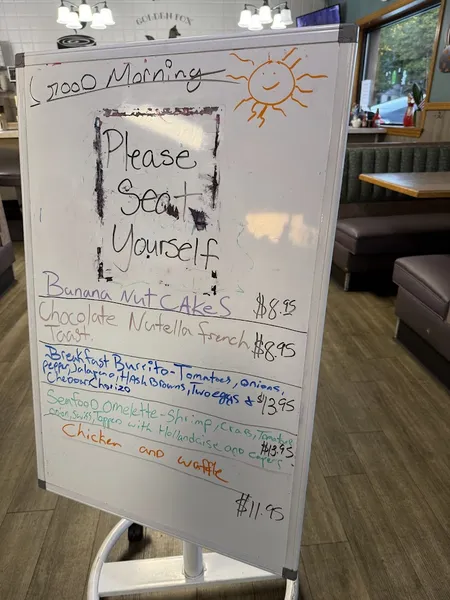 GOLDEN FOX
Good Morning
Please
Seat
Yourself
Banana Nut CAkes $8.95
Chocolate Nutella french
Toast. $8.95
Breakfast Burrito-Tomatoes, onions,
pepper, Jalapeno, HAsh Browns, Two eggs &
Cheddar Chorizo $13.95
Seafood omelette-shrimp, Crab, Tomatoe
onion, swiss, Topped with Hollandaise and capers
$13.95
Chicken and waffle
$11.95